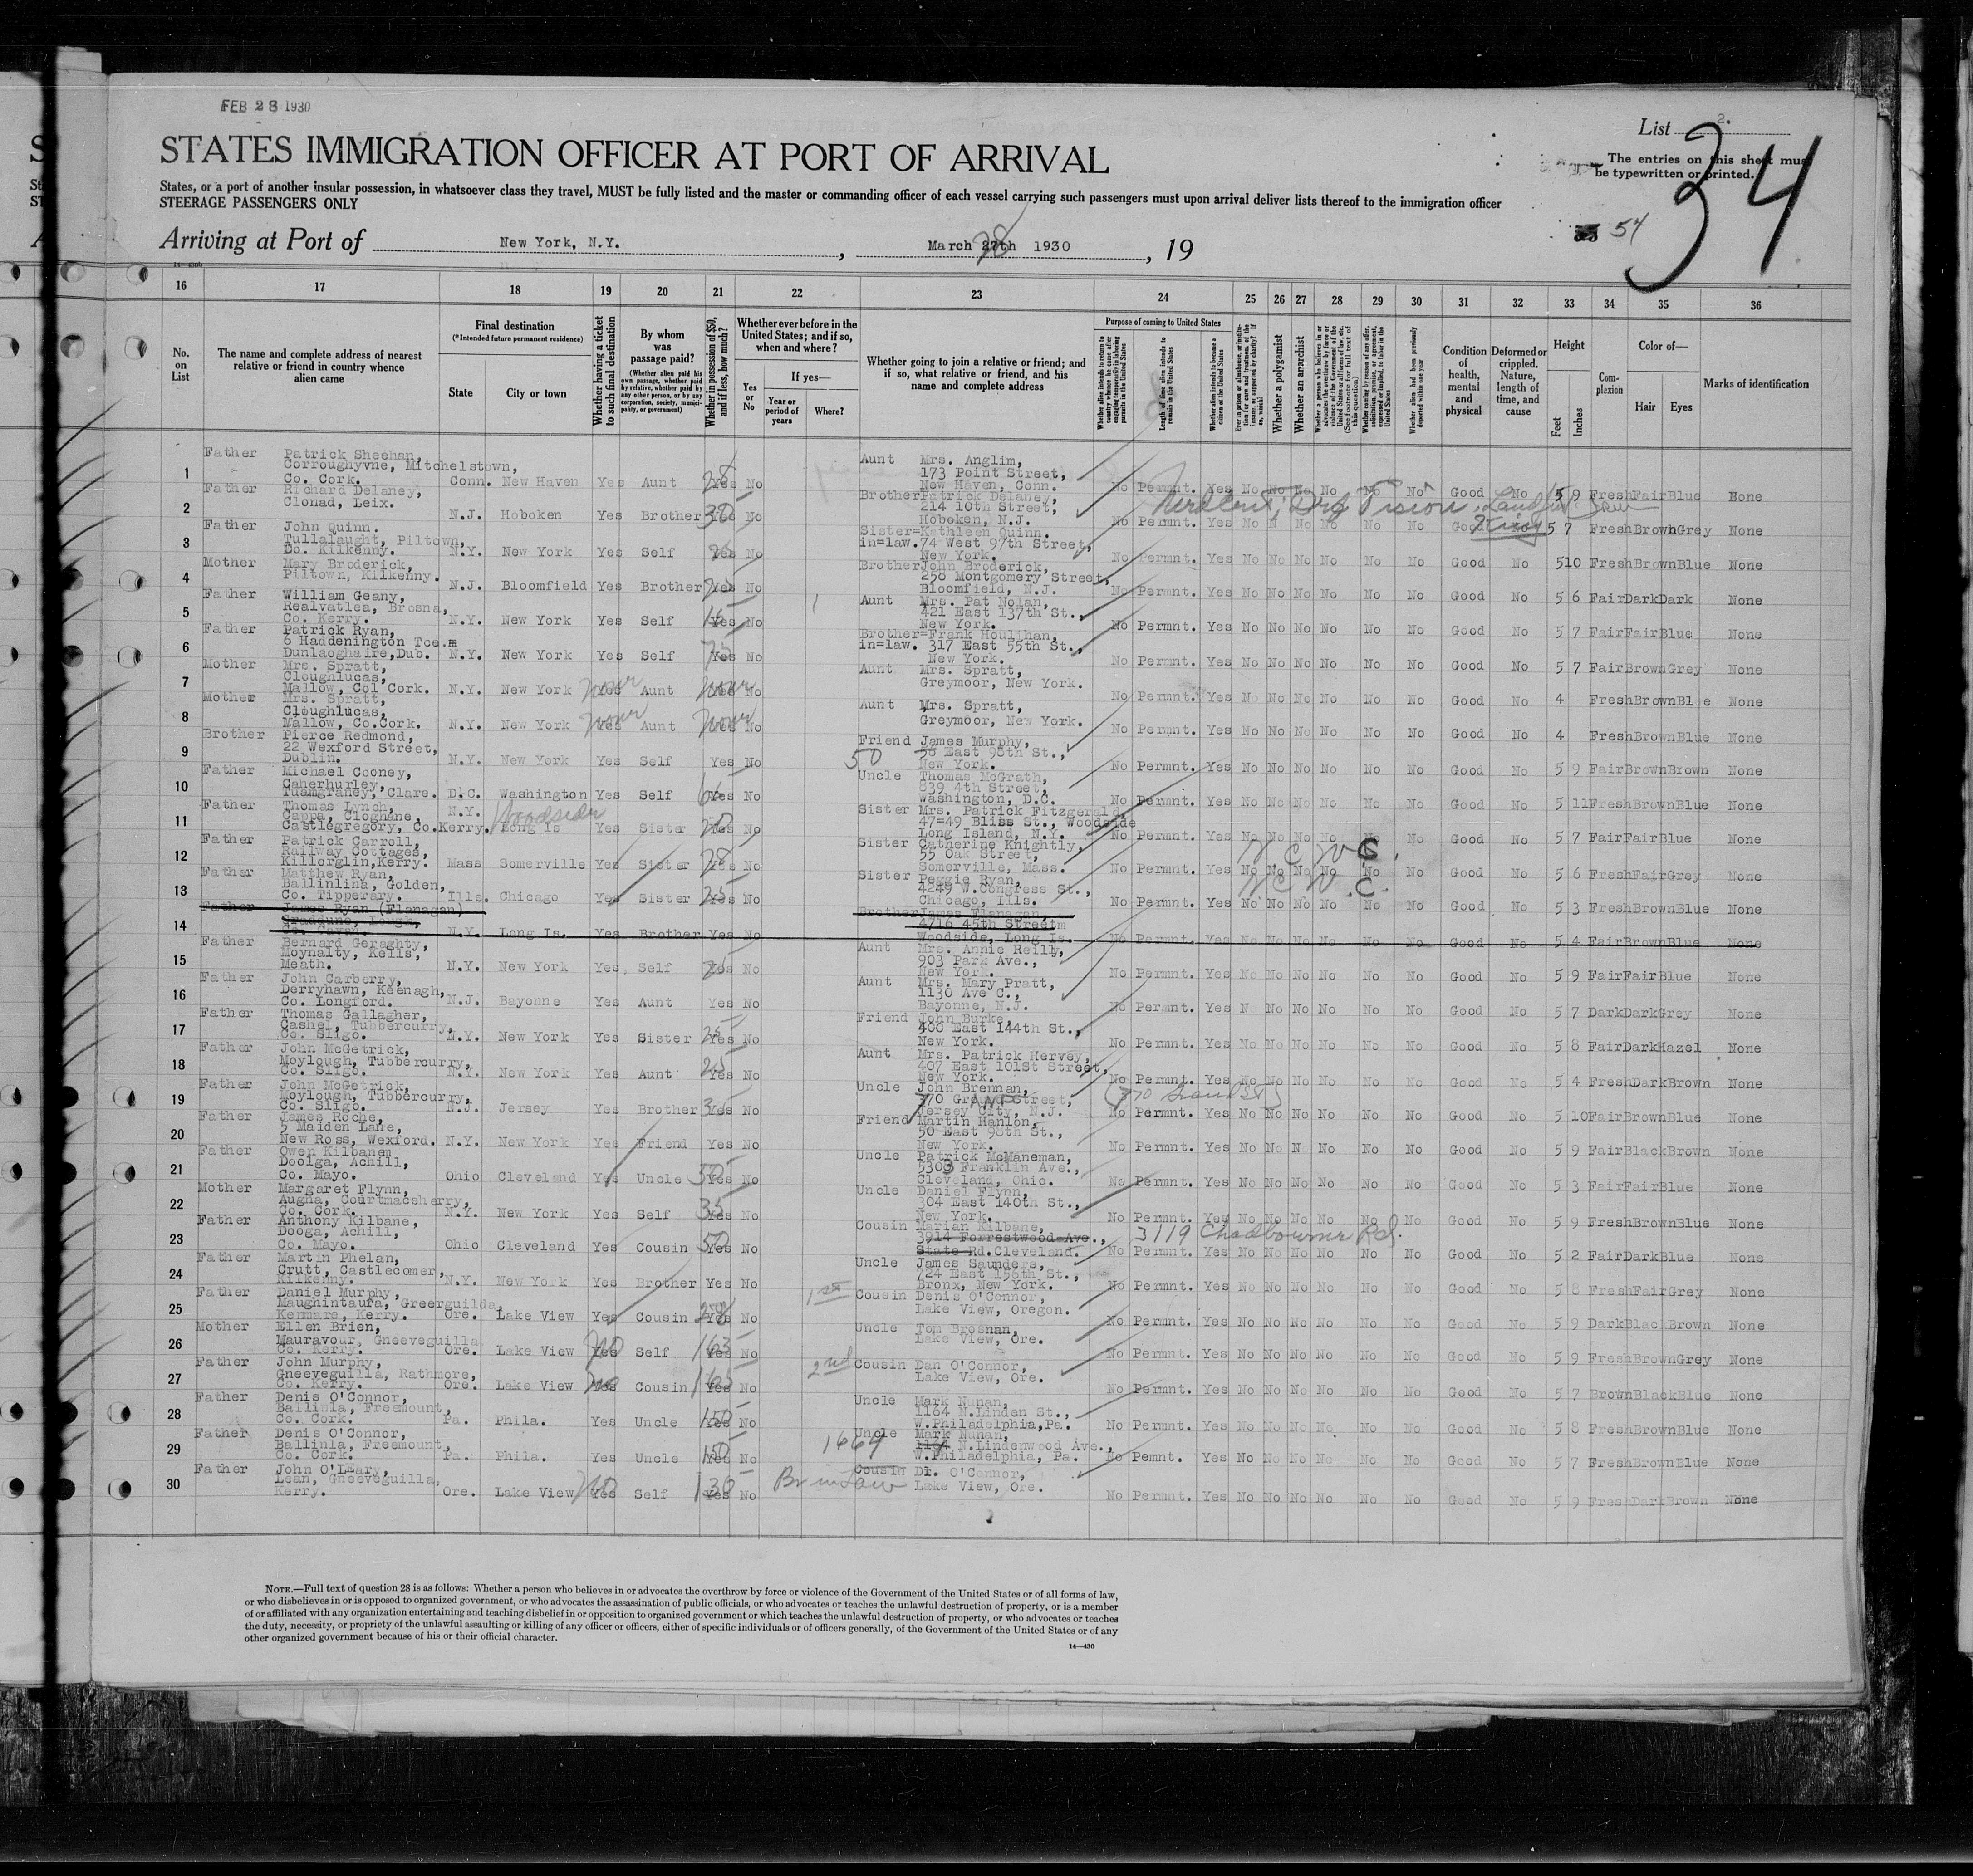 FEB 28 1930
List 2.
34
STATES IMMIGRATION OFFICER AT PORT OF ARRIVAL
The entries on this sheet must
be typewritten or printed.
States, or a port of another insular possession, in whatsoever class they travel, MUST be fully listed and the master or commanding officer of each vessel carrying such passengers must upon arrival deliver lists thereof to the immigration officer
STEERAGE PASSENGERS ONLY
54
Arriving at Port of New York, N.Y. , March 27th 1930 , 19
28
16 17 18 19 20 21 22 23 24 25 26 27 28 29 30 31 32 33 34 35 36
No. on List
The name and complete address of nearest relative or friend in country whence alien came
Final destination
(*Intended future permanent residence)
State
City or town
Whether having a ticket to such final destination
By whom was passage paid?
(Whether alien paid his own passage, whether paid by relative, whether paid by any other person, or by any corporation, society, municipality, or government)
Whether in possession of $50, and if less, how much?
Whether ever before in the United States; and if so, when and where?
Yes or No
If yes—
Year or period of years
Where?
Whether going to join a relative or friend; and if so, what relative or friend, and his name and complete address
Purpose of coming to United States
Length of time alien intends to remain in the United States
Whether alien intends to become a citizen of the United States
Whether a polygamist
Whether an anarchist
Condition of health, mental and physical
Deformed or crippled. Nature, length of time, and cause
Height
Feet
Inches
Complexion
Color of—
Hair
Eyes
Marks of identification
1 Father Patrick Sheehan, Corroughyvne, Mitchelstown, Co. Cork. Conn. New Haven Yes Aunt Yes No Aunt Mrs. Anglim, 173 Point Street, New Haven, Conn. No Permnt. Yes No No No No No No Good No 5 9 Fresh Fair Blue None
2 Father Richard Delaney, Clonad, Leix. N.J. Hoboken Yes Brother 30 Yes No Brother Patrick Delaney, 214 10th Street, Hoboken, N.J. No Permnt. Yes No No No No No Good 5 7 Fresh Brown Grey None
3 Father John Quinn. Tullalaught, Piltown, Co. Kilkenny. N.Y. New York Yes Self Yes No Sister=in=law. Kathleen Quinn. 74 West 97th Street, New York. No Permnt. Yes No No No No No No Good No 5 10 Fresh Brown Blue None
4 Mother Mary Broderick, Piltown, Kilkenny. N.J. Bloomfield Yes Brother Yes No Brother John Broderick, 258 Montgomery Street, Bloomfield, N.J. No Permnt. Yes No No No No No No Good No 5 6 Fair Dark Dark None
5 Father William Geany, Realvatlea, Brosna, Co. Kerry. N.Y. New York Yes Self Yes No Aunt Mrs. Pat Nolan, 421 East 137th St., New York. No Permnt. Yes No No No No No No Good No 5 7 Fair Fair Blue None
6 Father Patrick Ryan, 6 Haddenington Tce. Dunlaoghaire, Dub. N.Y. New York Yes Self Yes No Brother=in=law. Frank Houlihan, 317 East 55th St., New York. No Permnt. Yes No No No No No No Good No 5 7 Fair Brown Grey None
7 Mother Mrs. Spratt, Cloughlucas, Mallow, Col Cork. N.Y. New York Yes Aunt Yes No Aunt Mrs. Spratt, Greymoor, New York. No Permnt. Yes No No No No No No Good No 4 Fresh Brown Bl e None
8 Mother Mrs. Spratt, Cloughlucas, Mallow, Co.Cork. N.Y. New York Yes Aunt Yes No Aunt Mrs. Spratt, Greymoor, New York. No Permnt. Yes No No No No No No Good No 4 Fresh Brown Blue None
9 Brother Pierce Redmond, 22 Wexford Street, Dublin. N.Y. New York Yes Self Yes No Friend James Murphy, 50 East 98th St., New York. No Permnt. Yes No No No No No No Good No 5 9 Fair Brown Brown None
10 Father Michael Cooney, Caherhurley, Tuamgraney, Clare. D.C. Washington Yes Self Yes No Uncle Thomas McGrath, 839 4th Street, Washington, D.C. No Permnt. Yes No No No No No No Good No 5 11 Fresh Brown Blue None
11 Father Thomas Lynch, Cappa, Cloghane, Castlegregory, Co.Kerry. N.Y. Long Is Woodside Yes Sister Yes No Sister Mrs. Patrick Fitzgerald, 47=49 Bliss St., Woodside Long Island, N.Y. No Permnt. Yes No No No No No No Good No 5 7 Fair Fair Blue None
12 Father Patrick Carroll, Railway Cottages, Killorglin, Kerry. Mass Somerville Yes Sister Yes No Sister Catherine Knightly, 55 Oak Street, Somerville, Mass. No Permnt. Yes No No No No No No Good No 5 6 Fresh Fair Grey None
N.C.W.C.
13 Father Matthew Ryan, Ballinlina, Golden, Co. Tipperary. Ills. Chicago Yes Sister 25 Yes No Sister Peggie Ryan, 4249 W.Congress St., Chicago, Ills. No Permnt. Yes No No No No No No Good No 5 3 Fresh Brown Blue None
N.C.W.C.
14 Father James Ryan (Flanagan) N.Y. Long Is. Yes Brother Yes No Brother James Flanagan, 4716 45th Street Woodside, Long Is. No Permnt. Yes No No No No No No Good No 5 4 Fair Brown Blue None
15 Father Bernard Geraghty, Moynalty, Kells, Meath. N.Y. New York Yes Self Yes No Aunt Mrs. Annie Reilly, 903 Park Ave., New York. No Permnt. Yes No No No No No No Good No 5 9 Fair Fair Blue None
16 Father John Carberry, Derryhawn, Keenagh, Co. Longford. N.J. Bayonne Yes Aunt Yes No Aunt Mrs. Mary Pratt, 1130 Ave C., Bayonne, N.J. No Permnt. Yes N No No No No No Good No 5 7 Dark Dark Grey None
17 Father Thomas Gallagher, Cashel, Tubbercurry, Co. Sligo. N.Y. New York Yes Sister 25 Yes No Friend John Burke, 400 East 144th St., New York. No Permnt. Yes No No No No No No Good No 5 8 Fair Dark Hazel None
18 Father John McGetrick, Moylough, Tubbercurry, Co. Sligo. N.Y. New York Yes Aunt 25 Yes No Aunt Mrs. Patrick Hervey, 407 East 101St Street, New York. No Permnt. Yes No No No No No No Good No 5 4 Fresh Dark Brown None
19 Father John McGetrick, Moylough, Tubbercurry, Co. Sligo. N.J. Jersey Yes Brother Yes No Uncle John Brennan, 770 Ground Street, Jersey City, N.J. No Permnt. Yes No No No No No No Good No 5 10 Fair Brown Blue None
20 Father James Roche, 5 Maiden Lane, New Ross, Wexford. N.Y. New York Yes Friend Yes No Friend Martin Hanlon, 50 East 98th St., New York. No Permnt. Yes No No N No No No Good No 5 9 Fair Black Brown None
21 Father Owen Kilbanem Doolga, Achill, Co. Mayo. Ohio Cleveland Yes Uncle 50 Yes No Uncle Patrick McManeman, 5303 Franklin Ave., Cleveland, Ohio. No Permnt. Yes No No No No No No Good No 5 3 Fair Fair Blue None
22 Mother Margaret Flynn, Augha, Courtmacsherry, Co. Cork. N.Y. New York Yes Self 35 Yes No Uncle Daniel Flynn, 304 East 140th St., New York. No Permnt. Yes No No No No No No Good No 5 9 Fresh Brown Blue None
23 Father Anthony Kilbane, Dooga, Achill, Co. Mayo. Ohio Cleveland Yes Cousin 50 Yes No Cousin Marian Kilbane, 3914 Forrestwood Ave., State Rd. Cleveland. 3119 Chadbourne Rd. No Permnt. Yes No No No No No No Good No 5 2 Fair Dark Blue None
24 Father Martin Phelan, Crutt, Castlecomer, Kilkenny. N.Y. New York Yes Brother Yes No Uncle James Saunders, 724 East 156th St., Bronx, New York. No Permnt. Yes No No No No No No Good No 5 8 Fresh Fair Grey None
25 Father Daniel Murphy, Maughintaura, Greerguilda, Kenmare, Kerry. Ore. Lake View Yes Cousin Yes No 1st Cousin Denis O'Connor, Lake View, Oregon. No Permnt. Yes No No No No No No Good No 5 9 Dark Blac Brown None
26 Mother Ellen Brien, Mauravour, Gneeveguilla Co. Kerry. Ore. Lake View No Yes Self Yes No Uncle Tom Brosnan, Lake View, Ore. No Permnt. Yes No No No No No No Good No 5 9 Fresh Brown Grey None
27 Father John Murphy, Gneeveguilla, Rathmore, Co. Kerry. Ore. Lake View No Yes Cousin Yes No 2nd Cousin Dan O'Connor, Lake View, Ore. No Permnt. Yes No No No No No No Good No 5 7 Brown Black Blue None
28 Father Denis O'Connor, Ballinla, Freemount, Co. Cork. Pa. Phila. Yes Uncle 150 Yes No Uncle Mark Nunan, 1164 N.Linden St., W.Philadelphia,Pa. No Permnt. Yes No No No No No No Good No 5 8 Fresh Brown Blue None
29 Father Denis O'Connor, Ballinla, Freemount, Co. Cork. Pa. Phila. Yes Uncle 150 Yes No 1664 Uncle Mark Nunan, N.Lindenwood Ave., W.Philadelphia, Pa. No Pemnt. Yes No No No No No No Good No 5 7 Fresh Brown Blue None
30 Father John O'Leary, Lean, Gneeveguilla, Kerry. Ore. Lake View No Yes Self 130 Yes No Br in Law Cousin D. O'Connor, Lake View, Ore. No Permnt. Yes No No No No No No Good No 5 9 Fresh Dark Brown None
NOTE.—Full text of question 28 is as follows: Whether a person who believes in or advocates the overthrow by force or violence of the Government of the United States or of all forms of law,
or who disbelieves in or is opposed to organized government, or who advocates the assassination of public officials, or who advocates or teaches the unlawful destruction of property, or is a member
of or affiliated with any organization entertaining and teaching disbelief in or opposition to organized government or which teaches the unlawful destruction of property, or who advocates or teaches
the duty, necessity, or propriety of the unlawful assaulting or killing of any officer or officers, either of specific individuals or of officers generally, of the Government of the United States or of any
other organized government because of his or their official character.
14—430